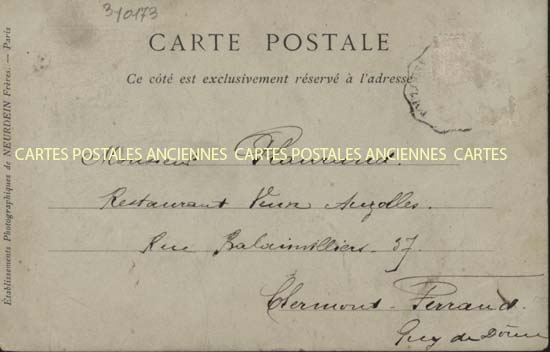 310173
CARTE POSTALE
Ce côté est exclusivement réservé à l'adresse
Établissements Photographiques de NEURDEIN Frères. — Paris
CARTES POSTALES ANCIENNES CARTES POSTALES ANCIENNES CARTES
Monsieur
Restaurant Veuve Auzolles.
Rue Balainvilliers. 37.
Clermont-Ferrand.
Puy de Dôme